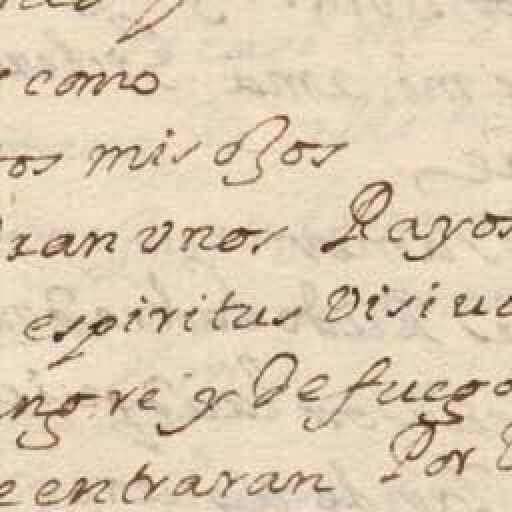 como
mis ojos
ran vnos Rayos
espiritus visiuo
ngre y de fuego
e entraran Por